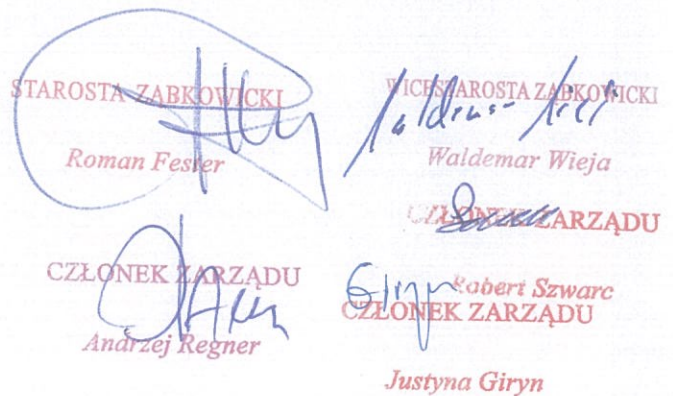 STAROSTA ZĄBKOWICKI
Roman Fester
WICESTAROSTA ZĄBKOWICKI
Waldemar Wieja
CZŁONEK ZARZĄDU
Robert Szwarc
CZŁONEK ZARZĄDU
Andrzej Regner
Giryn
CZŁONEK ZARZĄDU
Justyna Giryn